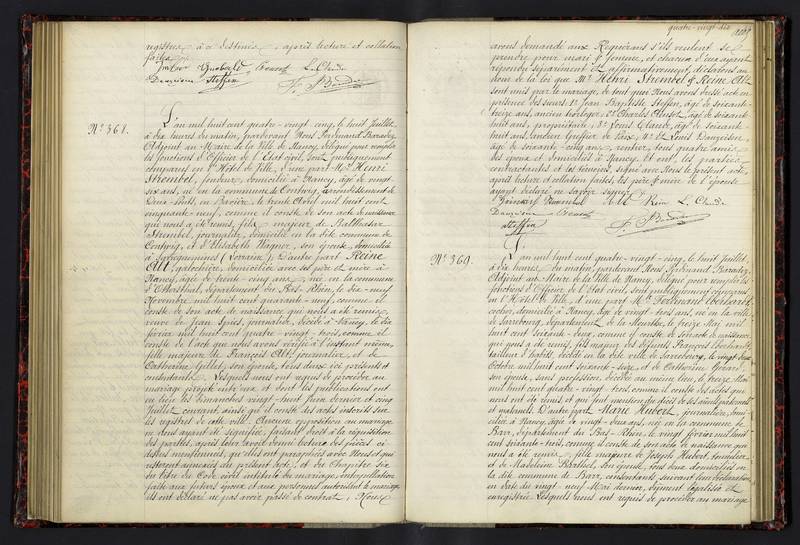 registres à ce destinés, après lecture et collation
faites.
L. Claude
Steffen
F. Baradez
N°. 368.
L'an mil huit cent quatre-vingt-cinq, le huit Juillet,
à dix heures du matin, pardevant Nous Ferdinand Baradez,
Adjoint au Maire de la Ville de Nancy, délégué pour remplir
les fonctions d'Officier de l'Etat civil, sont publiquement
comparus en l'Hôtel de Ville, d'une part Mr. Henri
Strembel, fondeur, domicilié à Nancy, âgé de vingt-
six ans, né en la commune de Contwig, arrondissement de
Deux-Ponts, en Bavière, le trente Avril mil huit cent
cinquante-neuf, comme il conste de son acte de naissance
qui nous a été remis, fils majeur de Balthasar
Strembel, journalier, domicilié en la dite commune de
Contwig, et d'Elisabeth Wagner, son épouse, domiciliée
à Sarreguemines (Lorraine). D'autre part Reine
Alt, galochière, domiciliée avec ses père et mère à
Nancy, âgée de trente-cinq ans, née en la commune
d', département du Bas-Rhin, le dix-neuf
Novembre mil huit cent quarante-neuf, comme il
conste de son acte de naissance qui nous a été remis,
veuve de Jean Spies, journalier, décédé à Nancy, le dix
février mil huit cent quatre-vingt-trois, comme il
conste de l'acte que nous avons vérifié à l'instant même,
fille majeure de François Alt, journalier, et de
Catherine Gillet, son épouse, tous deux ici présents et
consentants. Lesquels nous ont requis de procéder au
mariage projeté entre eux et dont les publications ont
eu lieu les Dimanches vingt-huit Juin dernier et cinq
Juillet courant, ainsi qu'il conste des actes inscrits sur
les registres de cette ville. Aucune opposition au mariage
ne nous ayant été signifiée, faisant droit à la réquisition
des parties, après leur avoir donné lecture des pièces ci-
dessus mentionnées, qu'elles ont paraphées avec Nous et qui
resteront annexées au présent acte, et du Chapitre six
du titre du Code civil intitulé du mariage, interpellation
faite aux futurs époux et aux personnes autorisant le mariage,
ils ont déclaré ne pas avoir passé de contrat; Nous
quatre-vingt-dix
avons demandé aux Requérans s'ils veulent se
prendre pour mari et femme, et chacun d'eux ayant
répondu séparément et affirmativement, déclarons au
nom de la loi que Mr. Henri Strembel et Reine Alt
sont unis par le mariage, de tout quoi Nous avons dressé acte en
présence des sieurs 1°. Jean Baptiste Steffen, âgé de soixante-
treize ans, ancien horloger, 2°. Charles, âgé de soixante-
huit ans, propriétaire, 3°. Louis Claude, âgé de soixante-
huit ans, ancien greffier de Paix, & 4°. Louis,
âgé de soixante-cinq ans, rentier, tous quatre amis
des époux et domiciliés à Nancy. Et ont, les parties
contractantes et les témoins, signé avec Nous le présent acte,
après lecture et collation faites, les père et mère de l'épouse
ayant déclaré ne savoir signer.
L. Claude
Steffen
F. Baradez
N°. 369.
L'an mil huit cent quatre-vingt-cinq, le huit Juillet,
à dix heures du matin, pardevant Nous Ferdinand Baradez,
Adjoint au Maire de la Ville de Nancy, délégué pour remplir les
fonctions d'Officier de l'Etat civil, sont publiquement comparus
en l'Hôtel de Ville, d'une part Mr. Ferdinand Eberhardt,
cocher, domicilié à Nancy, âgé de vingt-trois ans, né en la ville
de Sarrebourg, département de la Meurthe, le treize Mai mil
huit cent soixante-deux, comme il conste de son acte de naissance,
qui nous a été remis, fils majeur des défunts François Eberhardt,
tailleur d'habits, décédé en la dite ville de Sarrebourg, le vingt-deux
Octobre mil huit cent soixante-seize, et de Catherine Gérard,
son épouse, sans profession, décédée au même lieu, le treize
mil huit cent quatre-vingt-trois, comme il conste des actes qui
nous ont été remis et qui font mention du décès de ses aïeuls paternels
et maternels. D'autre part Marie Hubert, journalière, domi-
ciliée à Nancy, âgée de vingt-deux ans, née en la commune de
Barr, département du Bas-Rhin, le vingt février mil huit
cent soixante-trois, comme il conste de son acte de naissance qui
nous a été remis, fille majeure de Joseph Hubert, tonnelier,
et de Madeleine Barthel, son épouse, tous deux domiciliés en
la dite commune de Barr, consentants suivant leur déclaration,
en date du vingt-neuf Mai dernier, dûment légalisée et
enregistrée. Lesquels nous ont requis de procéder au mariage